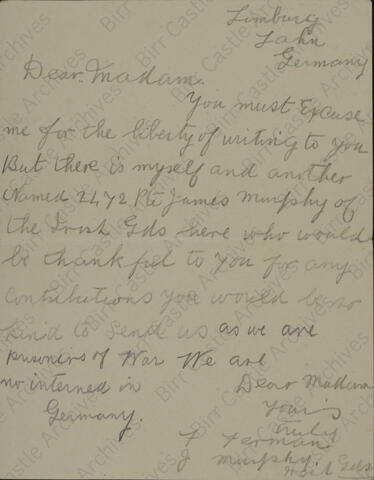 Limburg
Lahn
Germany
Dear Madam.
You must Excuse
me for the liberty of writing to you
But there is myself and another
Named 2472 Pte James Murphy of
the Irish Gds here who would
be thankful to you for any
Contributions you would be so
kind to send us as we are
prisoners of War We are
no interned in
Germany.
Dear Madam
Your's
truly
J
J Murphy
Gds
Birr Castle Archives